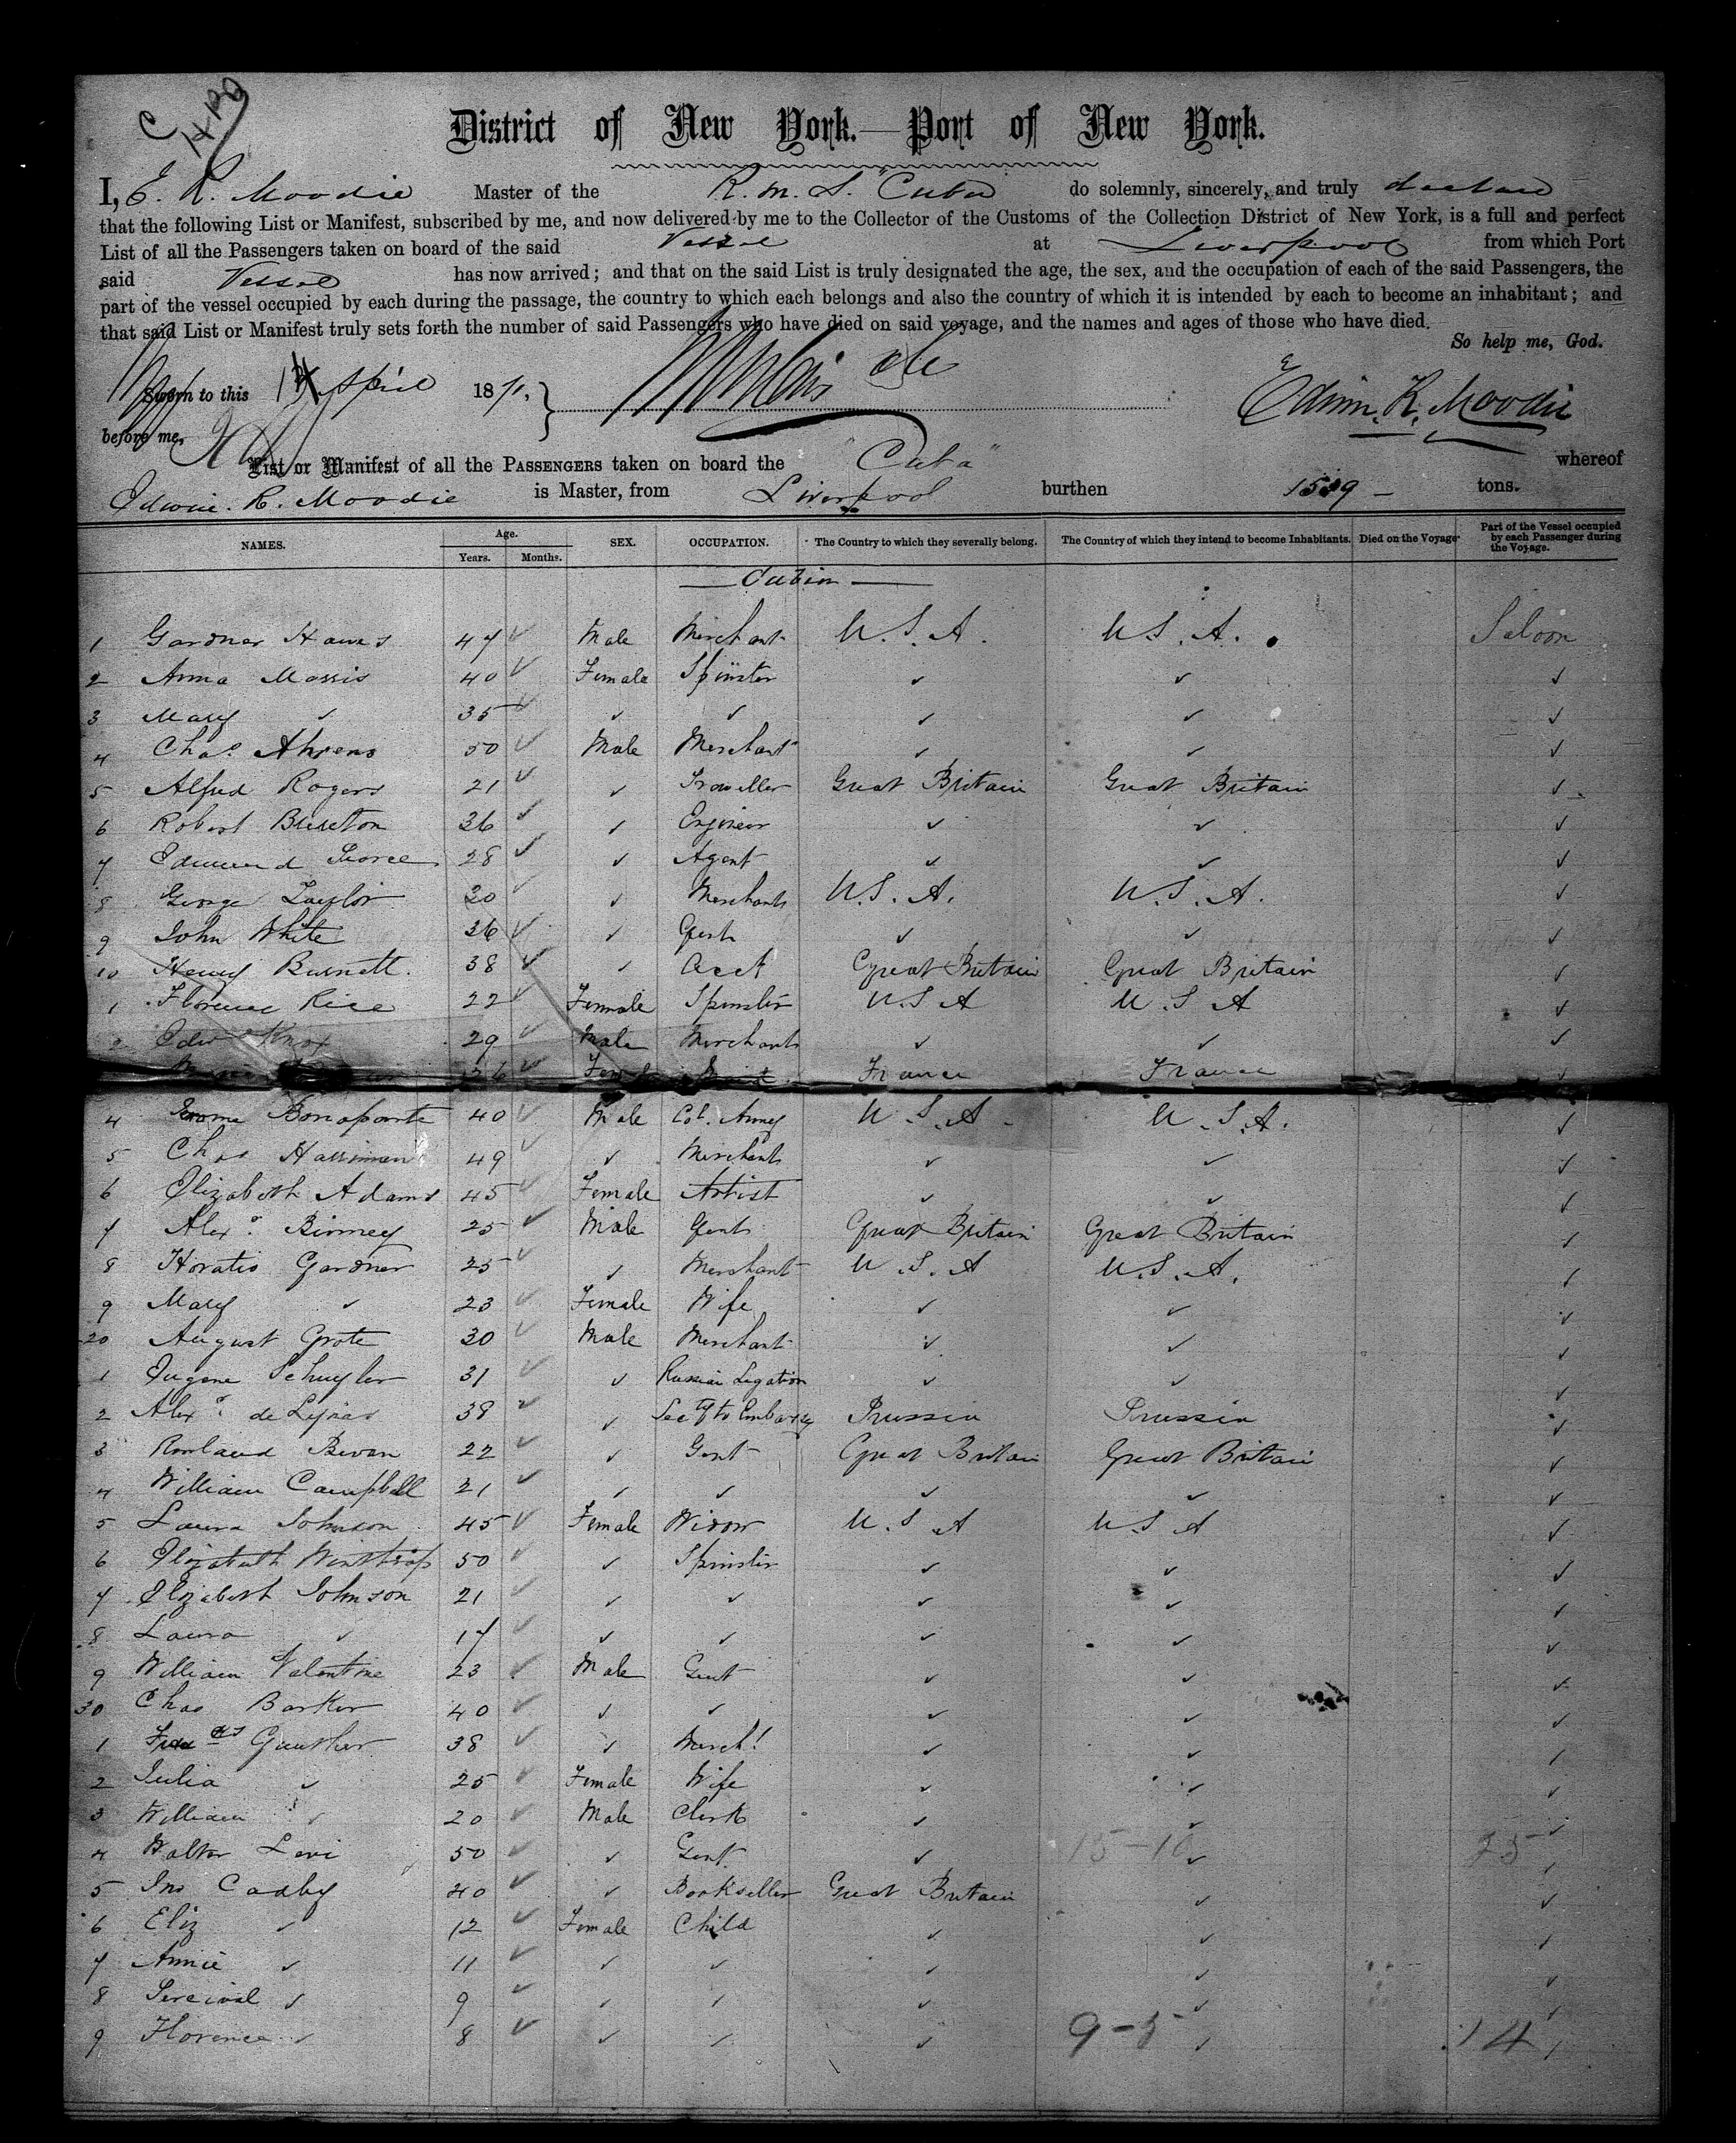 C
District of New York.—Port of New York.
I, E. R. Moodie Master of the R. M. S. "Cuba do solemnly, sincerely, and truly declare
that the following List or Manifest, subscribed by me, and now delivered by me to the Collector of the Customs of the Collection District of New York, is a full and perfect
List of all the Passengers taken on board of the said Vessel at Liverpool from which Port
said Vessel has now arrived; and that on the said List is truly designated the age, the sex, and the occupation of each of the said Passengers, the
part of the vessel occupied by each during the passage, the country to which each belongs and also the country of which it is intended by each to become an inhabitant; and
that said List or Manifest truly sets forth the number of said Passengers who have died on said voyage, and the names and ages of those who have died.
So help me, God.
Sworn to this April 1871.
Edwin. R. Moodie
before me,
List or Manifest of all the PASSENGERS taken on board the "Cuba" whereof
Edwin. R. Moodie is Master, from Liverpool burthen tons.
NAMES. Age. Years. Months. SEX. OCCUPATION. The Country to which they severally belong. The Country of which they intend to become Inhabitants. Died on the Voyage Part of the Vessel occupied by each Passenger during the Voyage.
— Cabin —
1 Gardner Hawes 47 ✓ Male Merchant U. S. A. U. S. A. Saloon
2 Anna Morris 40 ✓ Female Spinster ✓ ✓ ✓
3 Mary ✓ 35 ✓ ✓ ✓ ✓ ✓ ✓
4 Chas. Ahrens 50 ✓ Male Merchant ✓ ✓ ✓
5 Alfred Rogers 21 ✓ ✓ Traveller Great Britain Great Britain ✓
6 Robert Brereton 36 ✓ ✓ Engineer ✓ ✓ ✓
7 Edmund 28 ✓ ✓ Agent ✓ ✓ ✓
8 George Taylor 30 ✓ ✓ Merchant U. S. A. U. S. A. ✓
9 John White 36 ✓ ✓ Gent ✓ ✓ ✓
10 Henry Burnett. 38 ✓ ✓ Acct Great Britain Great Britain ✓
1 Florence Rice 22 ✓ Female Spinster U. S. A U. S. A ✓
2 Edw Knox 29 ✓ Male Merchant ✓ ✓ ✓
36 ✓ Female France France ✓
4 Jerome Bonaparte 40 ✓ Male Col. Army U. S. A. U. S. A. ✓
5 Chas Harriman 49 ✓ ✓ Merchant ✓ ✓ ✓
6 Elizabeth Adams 45 ✓ Female Artist ✓ ✓ ✓
7 Alexr. Binney 25 ✓ Male Gent Great Britain Great Britain ✓
8 Horatio Gardner 25 ✓ ✓ Merchant U. S. A U. S. A. ✓
9 Mary ✓ 23 ✓ Female Wife ✓ ✓ ✓
20 August Grote 30 ✓ Male Merchant ✓ ✓ ✓
1 Eugene Schuyler 31 ✓ ✓ Russian Legation ✓ ✓ ✓
2 Alexr. 38 ✓ ✓ Secty to Embassy Prussia Prussia ✓
3 Rowland Bevan 22 ✓ ✓ Gent Great Britain Great Britain ✓
4 William Campbell 21 ✓ ✓ ✓ ✓ ✓ ✓
5 Laura Johnson 45 ✓ Female Widow U. S. A U S A ✓
6 Elizabeth Winthrop 50 ✓ ✓ Spinster ✓ ✓ ✓
7 Elizabeth Johnson 21 ✓ ✓ ✓ ✓ ✓ ✓
8 Laura ✓ 17 ✓ ✓ ✓ ✓ ✓ ✓
9 William Valentine 23 ✓ Male Gent ✓ ✓ ✓
30 Chas Barker 40 ✓ ✓ ✓ ✓ ✓ ✓
1 Gunther 38 ✓ ✓ Merch! ✓ ✓ ✓
2 Julia ✓ 25 ✓ Female Wife ✓ ✓ ✓
3 William ✓ 20 ✓ Male Clerk ✓ ✓ ✓
4 Walter Levi 50 ✓ ✓ Gent. ✓ 15-10 ✓ ✓
5 Jno Cadby 40 ✓ ✓ Bookseller Great Britain ✓ ✓
6 Eliz ✓ 12 ✓ Female Child ✓ ✓ ✓
7 Annie ✓ 11 ✓ ✓ ✓ ✓ ✓ ✓
8 Percival ✓ 9 ✓ ✓ ✓ ✓ ✓ ✓
9 Florence ✓ 8 ✓ ✓ ✓ ✓ 9-5 ✓ 14 ✓